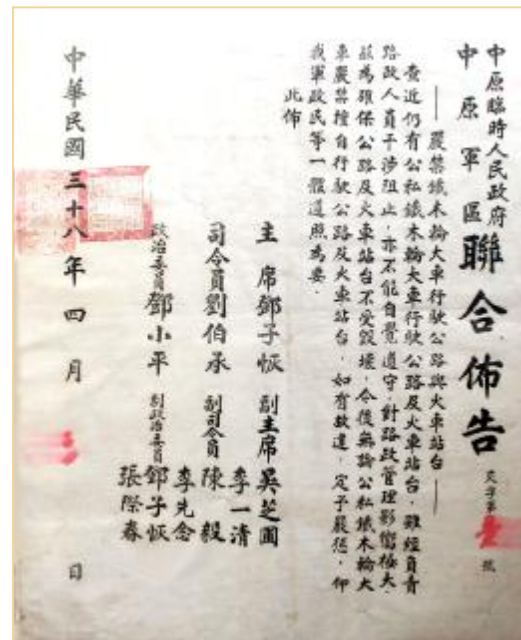 中原臨時人民政府
中原軍區
聯合佈告
天字第壹號
——嚴禁鐵木輪大車行駛公路與火車站台——
查近仍有公私鐵木輪大車行駛公路及火車站台，雖經負責
路政人員干涉阻止，亦不能自覺遵守，對路政管理影響極大，
茲為確保公路及火車站台不受毀壞，今後無論公私鐵木輪大
車嚴禁擅自行駛公路及火車站台，如有故違，定予嚴懲，仰
我軍政民等一體遵照為要。
此佈
主席鄧子恢 副主席吳芝圃
李一清
司令員劉伯承 副司令員陳毅
李先念
政治委員鄧小平 副政治委員鄧子恢
張際春
中華民國三十八年四月 日